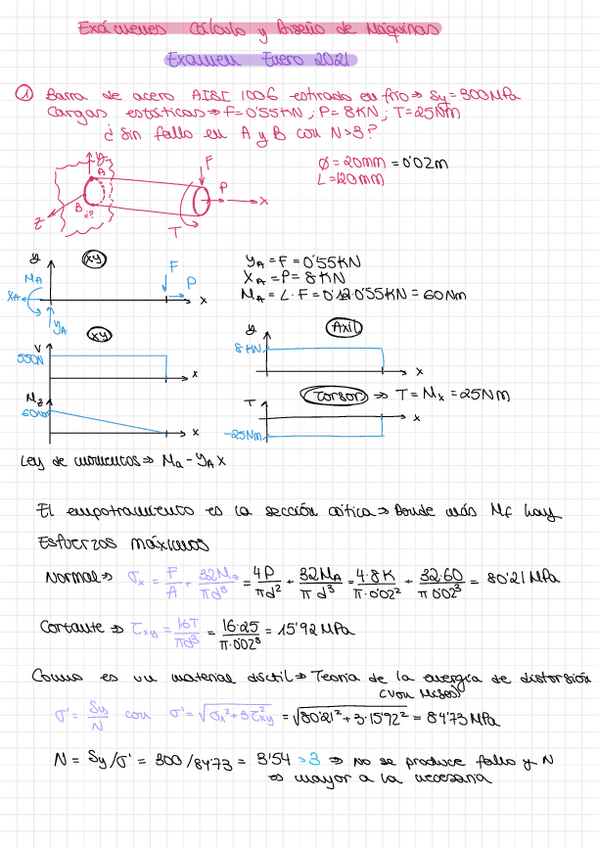 Exámenes Cálculo y Diseño de Máquinas
Examen Enero 2021
① Barra de acero AISI 1006 estirado en frío ⇒ Sy = 300MPa
Cargas estáticas ⇒ F = 0'55KN ; P = 8KN ; T = 25Nm
¿ Sin fallo en A y B con N>3 ?
y
A
B
¿?
z
F
P
x
T
Ø = 20mm = 0'02m
L = 120mm
y
xy
MA
XA
YA
F
P
x
YA = F = 0'55KN
XA = P = 8KN
MA = L · F = 0'12 · 0'55KN = 60Nm
xy
V
550N
x
y
Axil
8KN
x
Mz
60Nm
x
Torsor ⇒ T = Mx = 25Nm
T
x
-25Nm
Ley de momentos ⇒ Ma - YA x
El empotramiento es la sección crítica ⇒ Donde más Mf hay
Esfuerzos máximos
Normal ⇒ σx = F/A + 32Mz/πd³ = 4P/πd² + 32MA/πd³ = 4·8K/π·0'02² + 32·60/π0'02³ = 80'21 MPa
Cortante ⇒ τxz = 16T/πd³ = 16·25/π·0'02³ = 15'92 MPa
Como es un material dúctil ⇒ Teoría de la energía de distorsión
(Von Mises)
σ' = Sy/N con σ' = √σx² + 3τxy² = √80'21² + 3·15'92² = 84'73 MPa
N = Sy/σ' = 300/84'73 = 3'54 >3 ⇒ No se produce fallo y N
es mayor a la necesaria